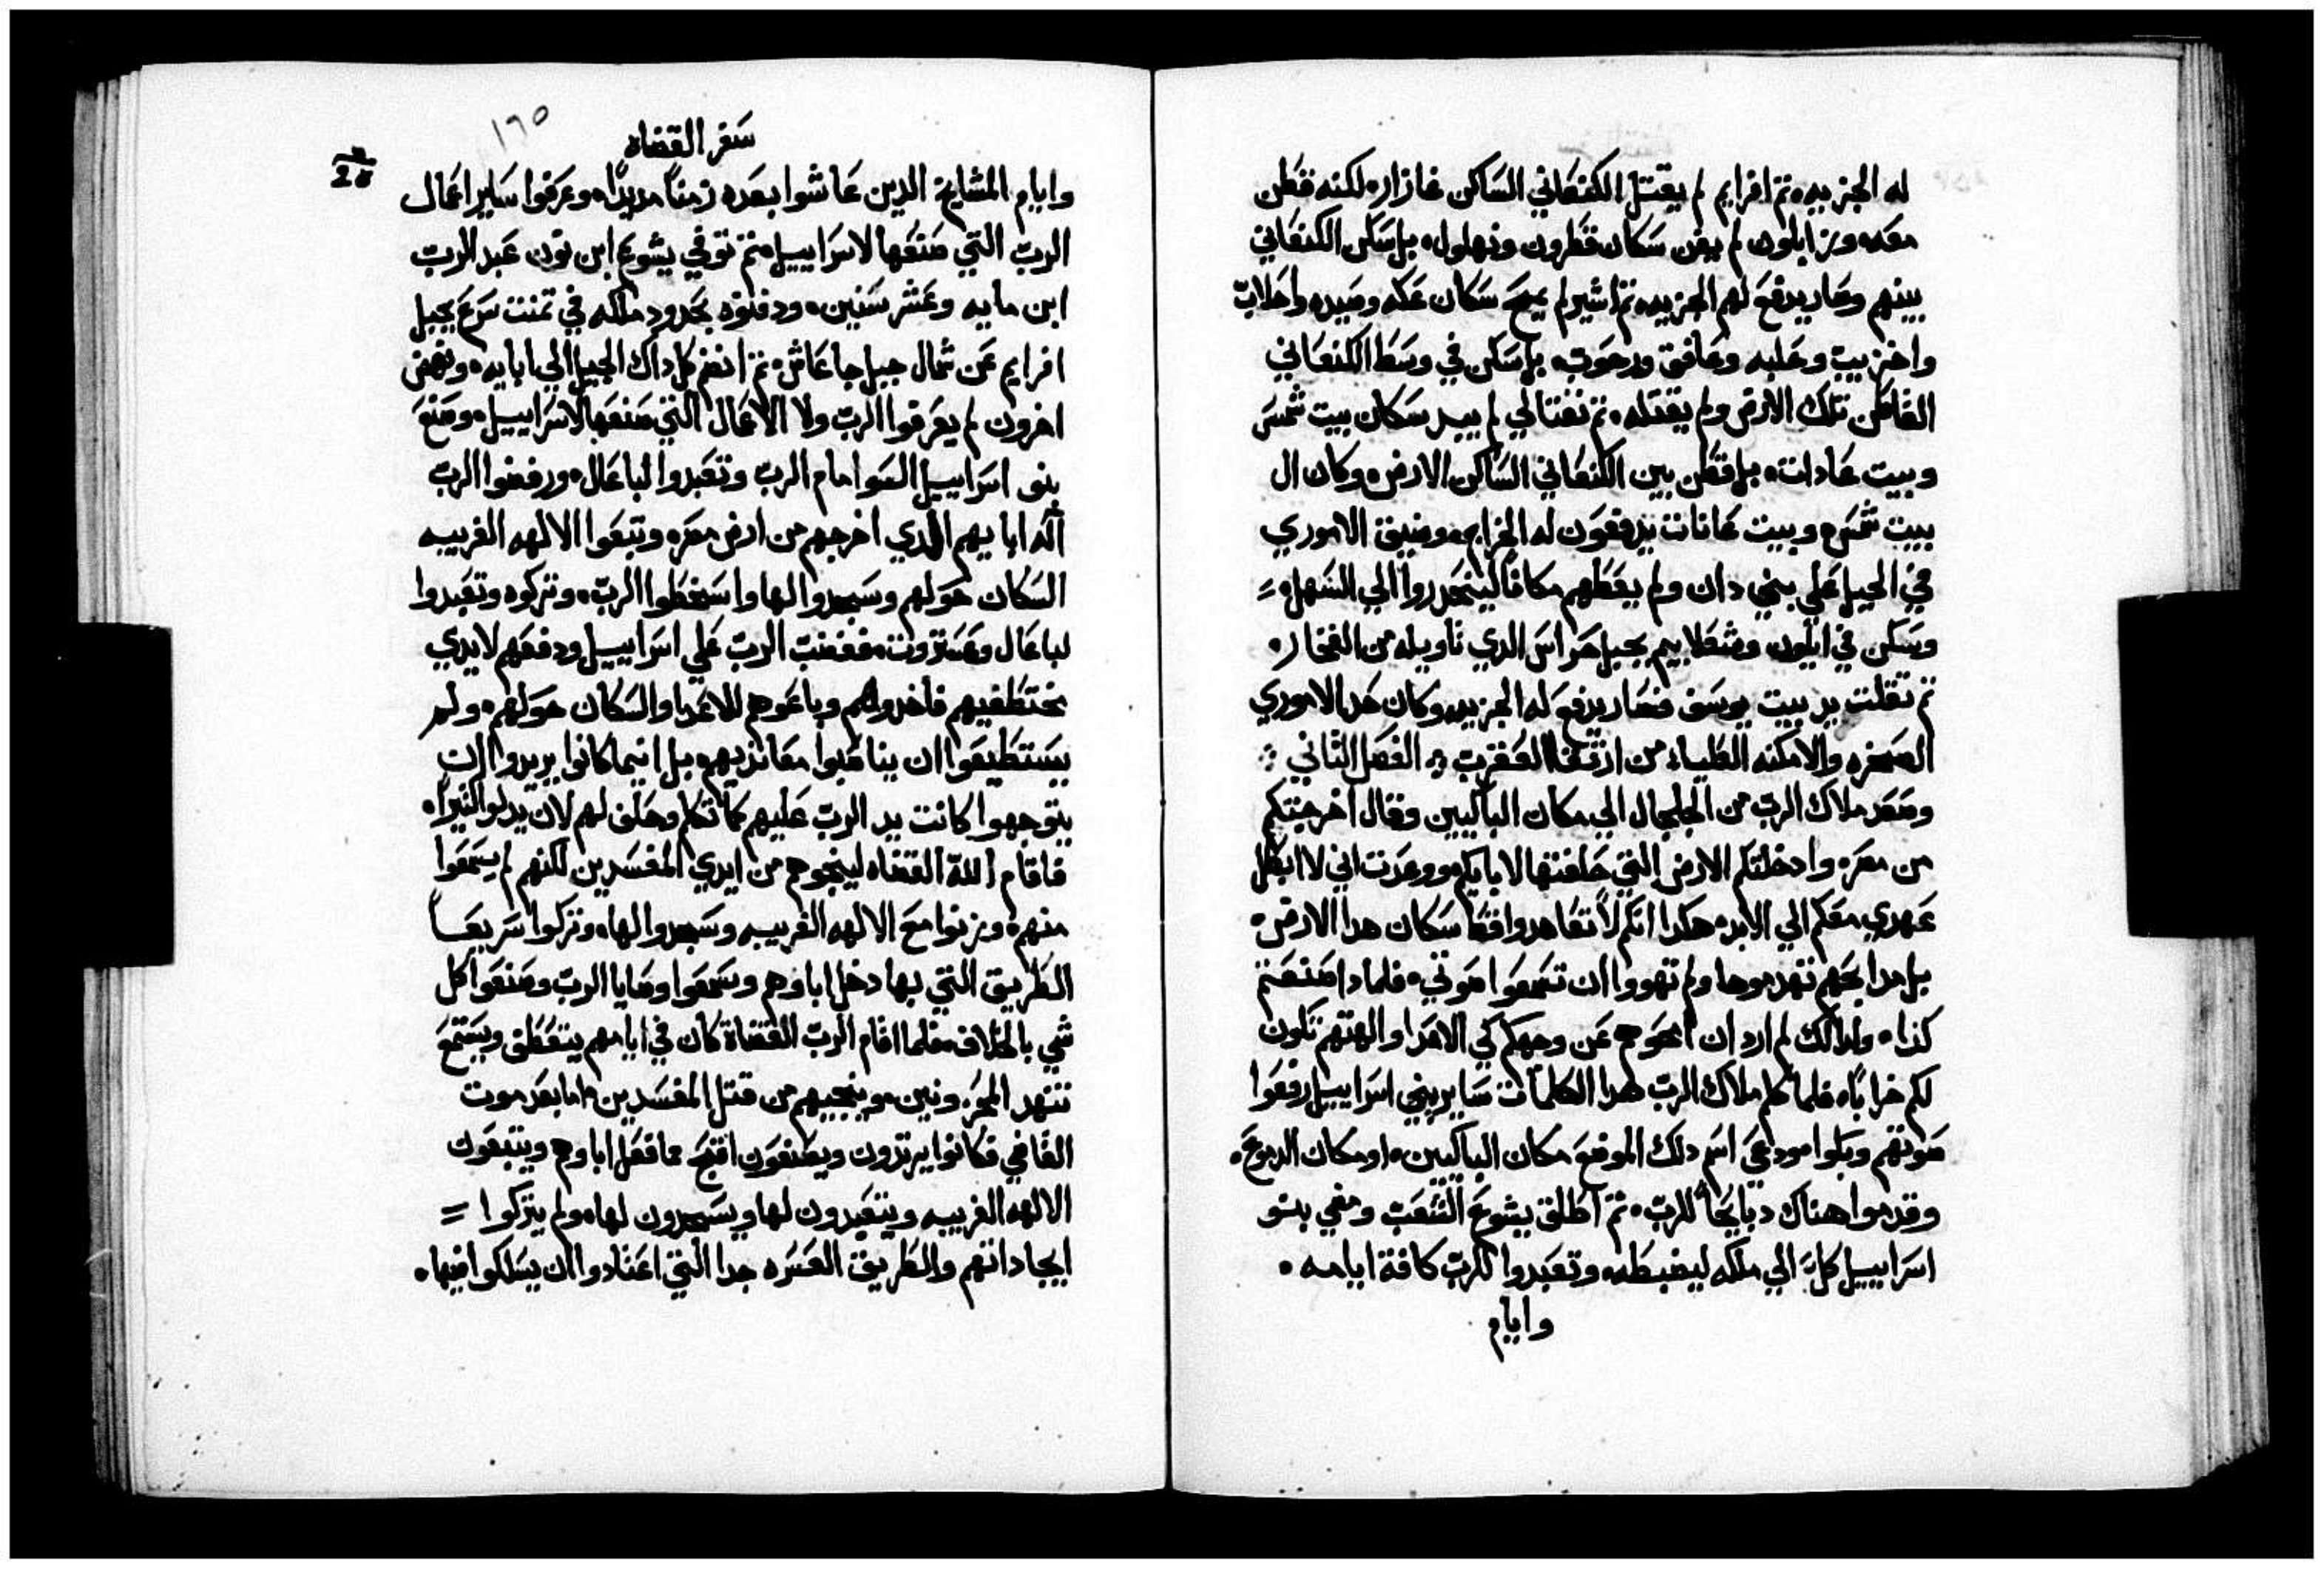 له الجزيه٠ ثم افرايم لم يقتل الكنعاني الساكن غازار٠ لكنه قطن
معه٠ وزابلون لم يفن سكان قطرون ونهلول٠ بل سكن الكنعاني
بينهم وصار يدفع لهم الجزيه٠ ثم اشير لم يمح سكان عكه وصيده واحلاب
واخزيب وحلبه وعافق ورحوب٠ بل سكن في وسط الكنعاني
القاطن تلك الارض ولم يقتله٠ ثم نفتالي لم يبيد سكان بيت شمس
وبيت عانات٠ بل قطن بين الكنعاني الساكن الارض٠ وكان ال
بيت شمس وبيت عانات يدفعون له الجزايه٠ وضيق الاموري
في الجبل علي بني دان ولم يعطهم مكاناً لينحدروا الي السهل٠
وسكن في ايلون وشعلابيم بجبل حراس الدي تاويله من الفخار٠
ثم تقلت يد بيت يوسف فصار يدفع له الجزيه وكان حد الاموري
الصخره والامكنه العلياء من ارتقا العقرب ܀ الفصل التاني ܀
وصعد ملاك الرب من الجلجال الي مكان الباكيين وقال اخرجتكم
من مصر٠ وادخلتكم الارض التي حلفتها لابايكم ووعدت اني لا ابطل
عهدي معكم الي الابد٠ هكدا انكم لا تعاهدوا قط سكان هدا الارض٠
بل مدابحهم تهدموها ولم تهووا ان تسمعوا صوتي٠ فلمادا صنعتم
كدا٠ ولدالك لم ارد ان امحوهم عن وجهكم كي الاعدا والهتهم تكون
لكم خراباً٠ فلما كلم ملاك الرب هدا الكلمات ساير بني اسراييل رفعوا
صوتهم وبكوا٠ ودعي اسم دلك الموضع مكان الباكيين٠ او مكان الدموع٠
وقدموا هناك دبايحاً للرب٠ ثم اطلق يشوع الشعب ومضي بنو
اسراييل كلٌ الي ملكه ليضبطه وتعبدوا للرب كافة ايامه٠
وايام
١٦٥
سفر القضاه
وايام المشايخ الدين عاشوا بعده زمناً مديداً٠ وعرفوا ساير اعمال
الرب التي صنعها لاسراييل٠ ثم توفي يشوع ابن نون عبد الرب
ابن مايه وعشر سنين٠ ودفنوه بحدود ملكه في تمنت سرع بجبل
افرايم عن شمال جبل جاعاش٠ ثم انضم كل داك الجيل الي ابايه٠ ونهض
اخرون لم يعرفوا الرب ولا الاعمال التي صنعها لاسراييل٠ وصنع
بنو اسراييل السو امام الرب وتعبدوا لباعال٠ ورفضوا الرب
اله ابايهم الدي اخرجهم من ارض مصر٠ وتبعوا الالهه الغريبه
السكان حولهم وسجدوا لها واسخطوا الرب٠ وتركوه وتعبدوا
لباعال وعستروت٠ فغضب الرب علي اسراييل ودفعهم لايدي
مختطفيهم فاخدوهم وباعوهم للاعدا والسكان حولهم٠ ولم
يستطيعوا ان يناصبوا معانديهم٠ بل اينما كانوا يريدوا ان
يتوجهوا كانت يد الرب عليهم كما تكلم وحلف لهم لان يدلو كتيرا٠
فاقام الله القضاه لينجوهم من ايدي المفسدين لكنهم لم يسمعوا
منهم٠ وزنوا مع الالهه الغريبه وسجدوا لها٠ وتركوا سريعاً
الطريق التي بها دخل اباوهم وسمعوا وصايا الرب وصنعوا كل
شي بالخلاف٠ فلما اقام الرب القضاة كان في ايامهم يتعطف ويستمع
تنهد المحزونين٠ وينجيهم من قتل المفسدين٠ اما بعد موت
القاضي فكانوا يرتدون ويصنعون اقبح مما فعل اباوهم ويتبعون
الالهه الغريبه ويتعبدون لها ويسجدون لها٠ ولم يتركوا
ايجاداتهم والطريق العسره جدا التي اعتادوا ان يسلكوا فيها٠